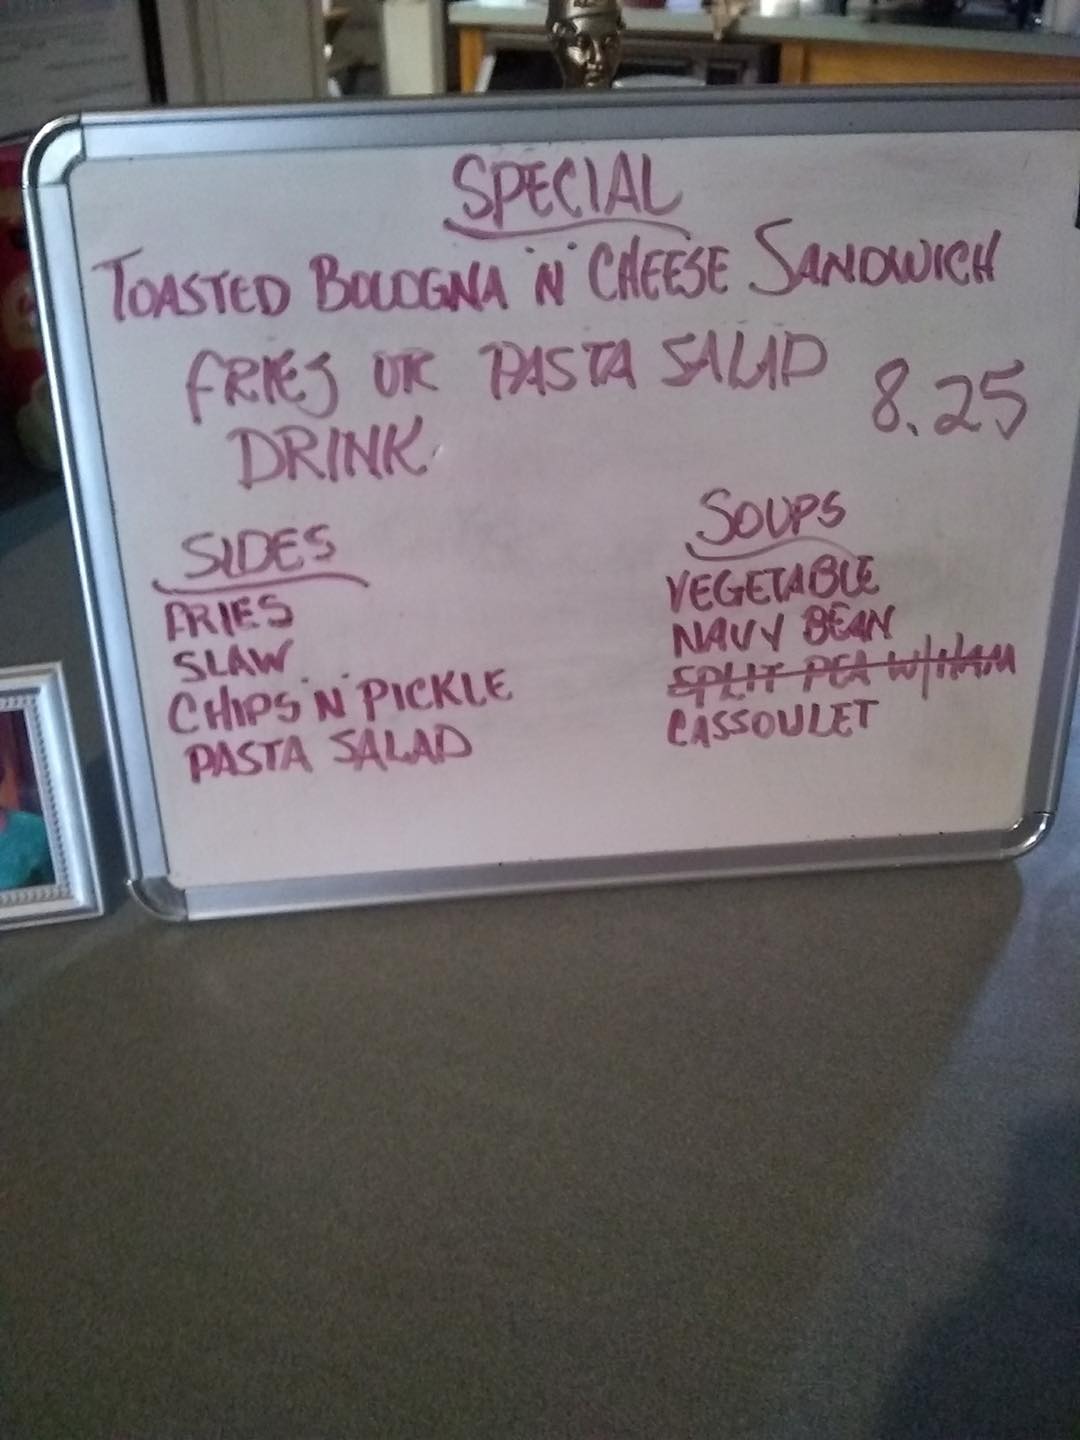 SPECIAL
TOASTED BOLOGNA "N" CHEESE SANDWICH
FRIES OR PASTA SALAD 8.25
DRINK
SIDES
FRIES
SLAW
CHIPS "N" PICKLE
PASTA SALAD
SOUPS
VEGETABLE
NAVY BEAN
SPLIT PEA W/HAM
CASSOULET